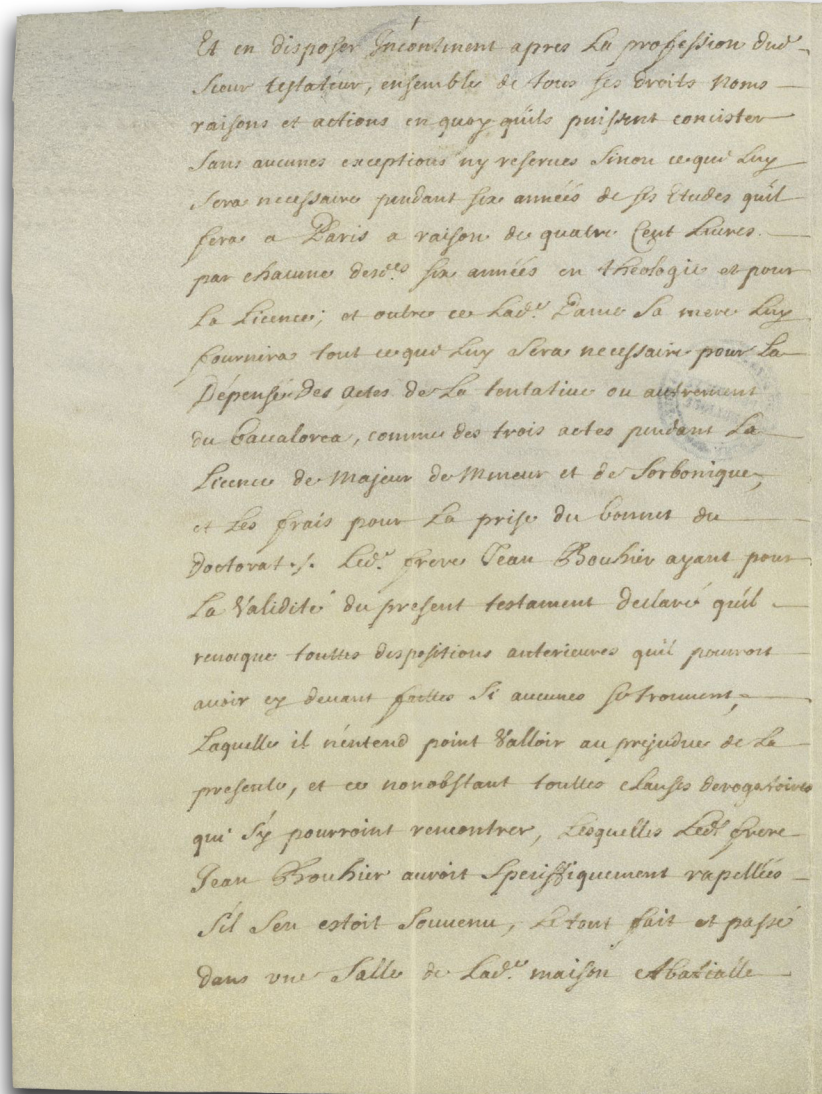 Et en disposer Incontinent apres La profession dud.
Sieur testateur, ensemble de tous ses droits Noms
raisons et actions en quoy qu'ils puissent concister
Sans aucunes exceptions ny reserves Sinon ce qui Luy
Sera necessaire pendant six années de ses Etudes qu'il
fera a Paris a raison de quatre Cent Livres
par chacune desd.es six années en theologie et pour
La Licence; et outre ce Lad.e Dame Sa mere Luy
fournira tout ce qui Luy Sera necessaire pour La
Dépense des actes de La tentative ou autrement
du baccalorea, comme des trois actes pendant La
Licence de Majeur de Mineur et de Sorbonique,
et Les frais pour La prise du bonnet du
Doctorat ./. Led.t frere Jean Bouhier ayant pour
La Validité du present testament declaré qu'il
revoque touttes dispositions anterieures qu'il pourroit
avoir cy devant faittes Si aucunes se trouvent,
Laquelle il n'entend point Valloir au prejudice de La
presente, et ce nonobstant touttes clauses derogatoires
qui s'y pourroint rencontrer, Lesquelles Led.t frere
Jean Bouhier auroit Speciffiquement rapellées
S'il s'en estoit Souvenu, Le tout fait et passé
dans vne Salle de Lad.e maison Abatialle